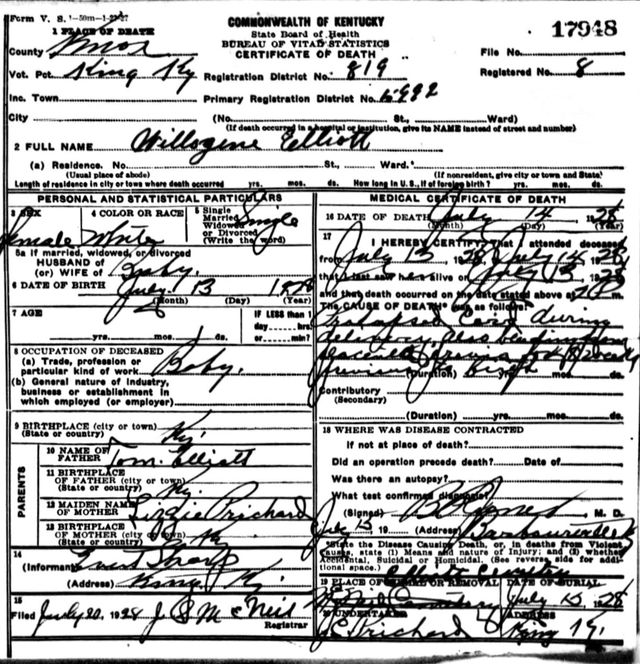 Form V. S. 1-50m-1-27-27
COMMONWEALTH OF KENTUCKY
State Board of Health
BUREAU OF VITAL STATISTICS
CERTIFICATE OF DEATH
17948
1 PLACE OF DEATH
County Knox
File No.
Vot. Pct. King Ky
Registration District No. 819
Registered No. 8
Inc. Town
Primary Registration District No.
City (No. St., Ward)
(If death occurred in a hospital or institution, give its NAME instead of street and number)
2 FULL NAME Willogene Elliott
(a) Residence. No. St., Ward.
(Usual place of abode) (If nonresident, give city or town and State)
Length of residence in city or town where death occurred yrs. mos. ds. How long in U. S., if of foreign birth? yrs. mos. ds.
PERSONAL AND STATISTICAL PARTICULARS
3 SEX
female
4 COLOR OR RACE
White
5 Single
Married
Widowed
or Divorced
(Write the word)
Single
5a If married, widowed, or divorced
HUSBAND of
(or) WIFE of Baby.
6 DATE OF BIRTH July 13 1928
(Month) (Day) (Year)
7 AGE
yrs. mos. ds.
IF LESS than 1
day hrs.
or min.?
8 OCCUPATION OF DECEASED
(a) Trade, profession or
particular kind of work Baby.
(b) General nature of industry,
business or establishment in
which employed (or employer)
9 BIRTHPLACE (city or town)
(State or country) Ky.
PARENTS
10 NAME OF
FATHER Tom Elliott
11 BIRTHPLACE
OF FATHER (city or town)
(State or country) Ky.
12 MAIDEN NAME
OF MOTHER Lizzie Prichard
13 BIRTHPLACE
OF MOTHER (city or town)
(State or country) Ky
14
(Informant) Sharp
(Address) King, Ky.
15
Filed July 20, 1928 J S McNeil
Registrar
MEDICAL CERTIFICATE OF DEATH
16 DATE OF DEATH July 14 1928
(Month) (Day) (Year)
17
I HEREBY CERTIFY, That I attended deceased
from July 13 1928 July 14 1928
that I last saw her alive on July 13 1928
and that death occurred on the date stated above at 2 m.
The CAUSE OF DEATH* was as follows:
Prolapsed Cord during
delivery, also bleeding from
placenta
previous to birth
(Duration) yrs. mos. ds.
Contributory
(Secondary)
(Duration) yrs. mos. ds.
18 WHERE WAS DISEASE CONTRACTED
If not at place of death?
Did an operation precede death? Date of
Was there an autopsy?
What test confirmed diagnosis?
(Signed) M. D.
July 15 19 (Address) Barbourville Ky
*State the Disease Causing Death, or, in deaths from Violent
Causes, state (1) Means and nature of Injury; and (2) whether
Accidental, Suicidal or Homicidal. (See reverse side for addi-
tional space.)
19 PLACE OF BURIAL OR REMOVAL
Cemetery
DATE OF BURIAL
July 15 1928
20 UNDERTAKER
J E Prichard
ADDRESS
King Ky.